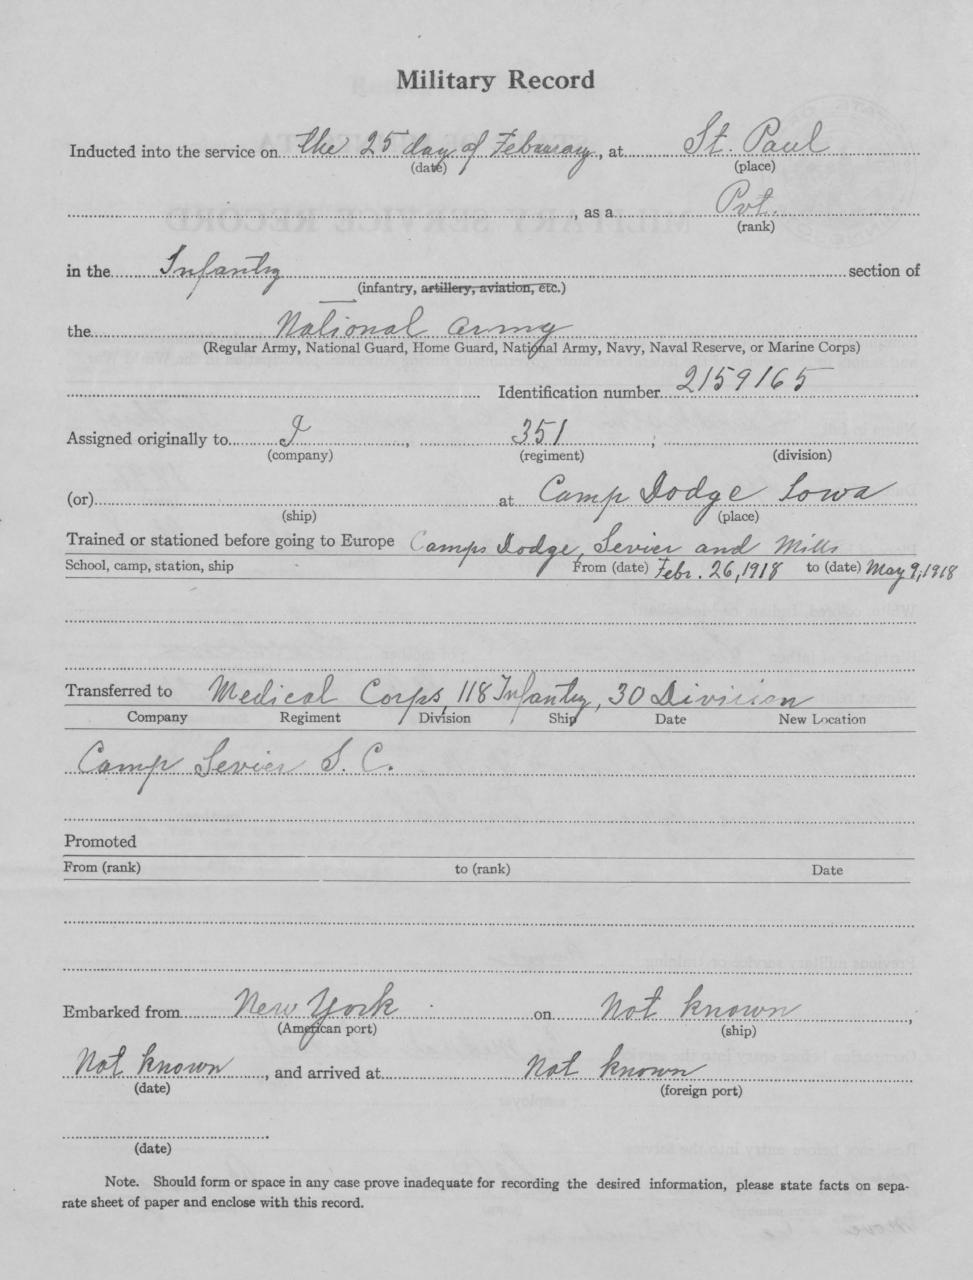 Military Record
Inducted into the service on the 25 day of Febuaray, at St. Paul
(date) (place)
, as a Pvt.
(rank)
in the Infantry section of
(infantry, artillery, aviation, etc.)
the National Army
(Regular Army, National Guard, Home Guard, National Army, Navy, Naval Reserve, or Marine Corps)
Identification number 2159165
Assigned originally to I, 351;
(company) (regiment) (division)
(or) at Camp Dodge Iowa
(ship) (place)
Trained or stationed before going to Europe Camps Dodge, Sevier and Mills
School, camp, station, ship From (date) Febr. 26, 1918 to (date) May 9, 1918
Transferred to Medical Corps, 118 Infantry, 30 Division
Company Regiment Division Ship Date New Location
Camp Sevier S. C.
Promoted
From (rank) to (rank) Date
Embarked from New York on Not known,
(American port) (ship)
Not known, and arrived at Not known
(date) (foreign port)
.
(date)
Note. Should form or space in any case prove inadequate for recording the desired information, please state facts on sepa-
rate sheet of paper and enclose with this record.